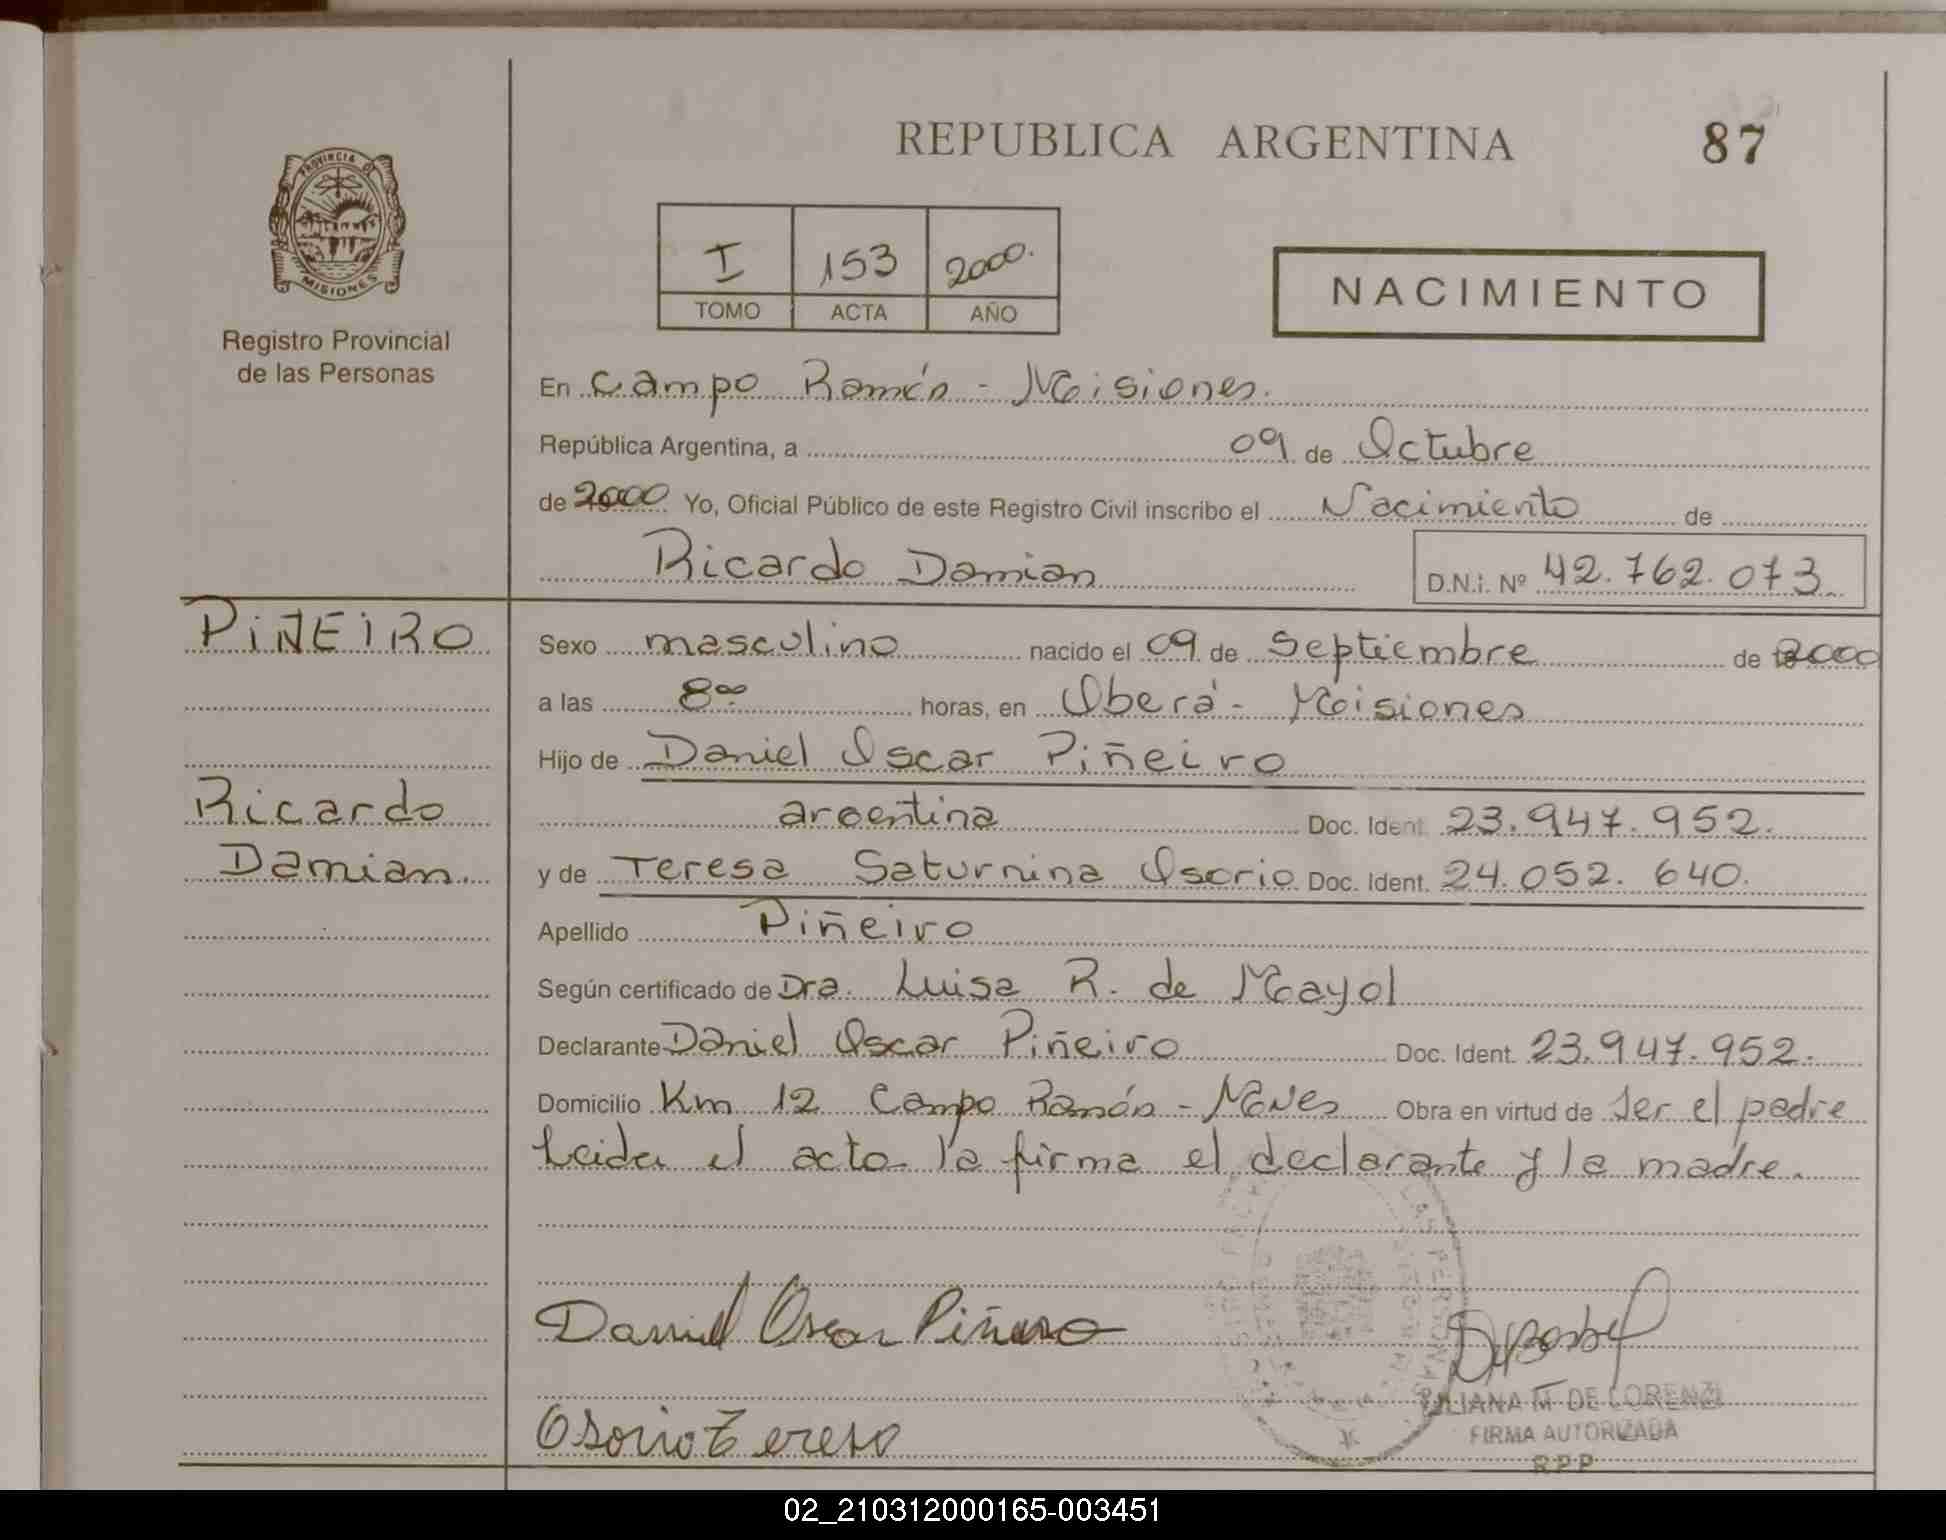 REPUBLICA ARGENTINA
87
PROVINCIA DE
MISIONES
Registro Provincial
de las Personas
I 153 2000.
TOMO ACTA AÑO
NACIMIENTO
En Campo Ramón - Misiones.
República Argentina, a 09 de Octubre
de 2000 Yo, Oficial Público de este Registro Civil inscribo el Nacimiento de
Ricardo Damian D.N.i. Nº 42.762.073
PiÑEiRO
Sexo masculino nacido el 09 de Septiembre de 2000
a las 8⁰⁰ horas, en Oberá - Misiones
Hijo de Daniel Oscar Piñeiro
Ricardo
argentina Doc. Ident. 23.947.952.
Damian.
y de Teresa Saturnina Osorio Doc. Ident. 24.052.640.
Apellido Piñeiro
Según certificado de Dra. Luisa R. de Mayol
Declarante Daniel Oscar Piñeiro Doc. Ident. 23.947.952.
Domicilio Km 12 Campo Ramón - Mnes Obra en virtud de ser el padre
Leida el acta la firma el declarante y la madre.
Daniel Oscar Piñeiro
LILIANA M. DE LORENZI
FIRMA AUTORIZADA
R.P.P.
Osorio Teresa
02_210312000165-003451